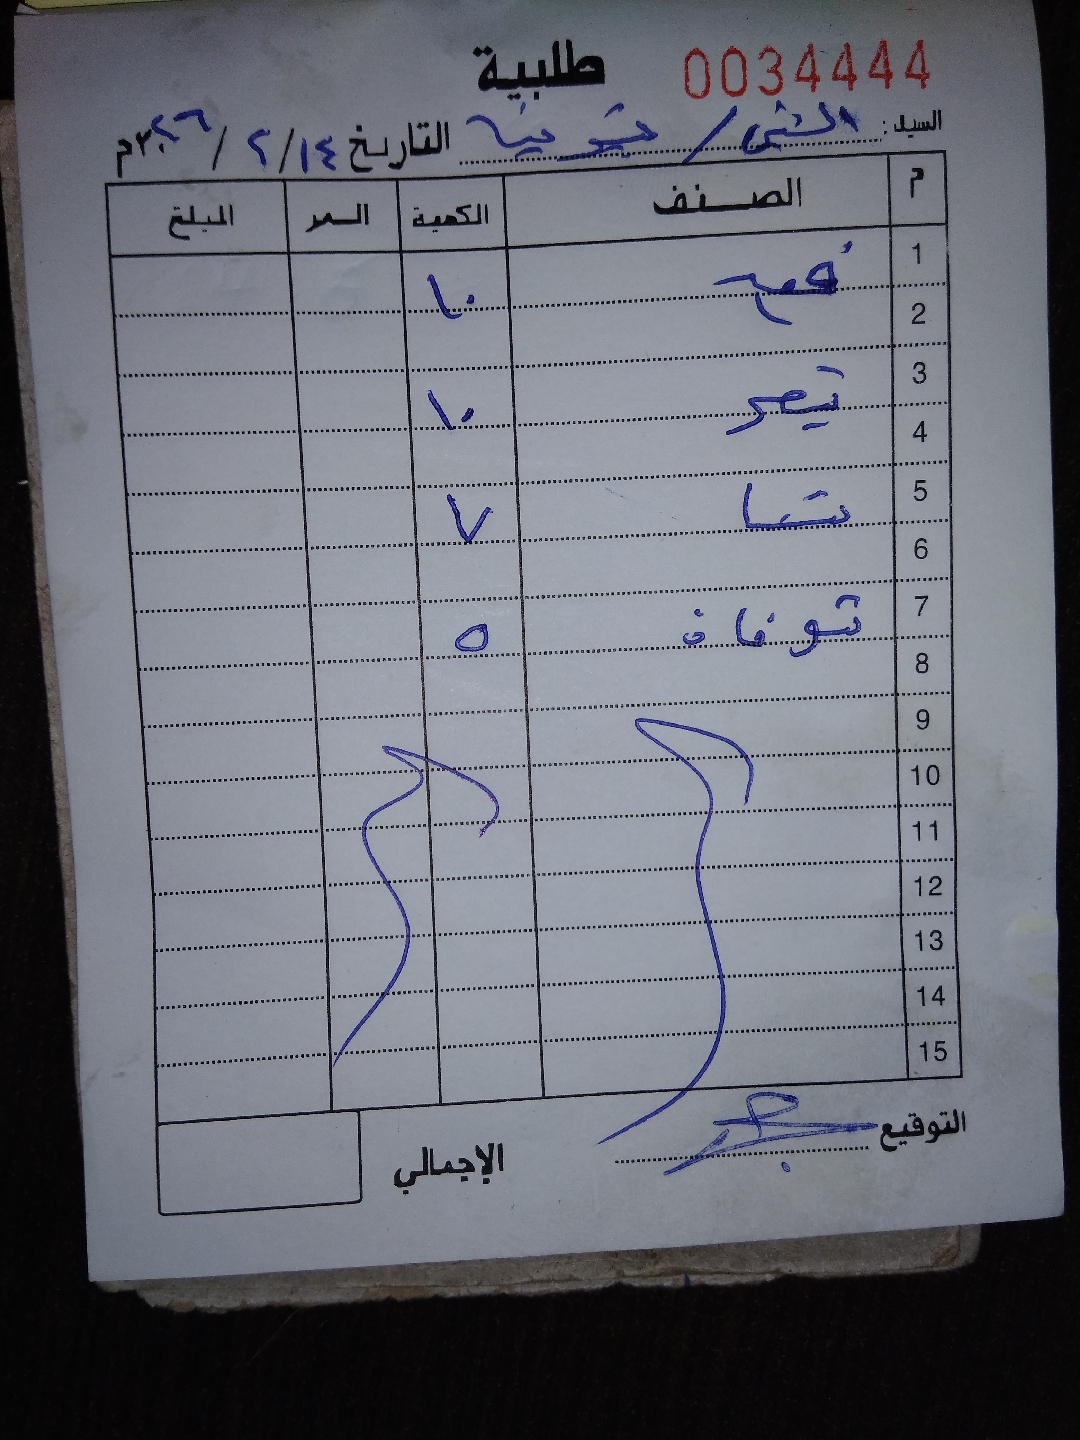 طلبية 0034444
السيد: / التاريخ ١٤/ ٢ / ٢٠٢٦م
م الصنف الكمية السعر المبلغ
1 قمح ١٠
2
3 ١٠
4
5 ٧
6
7 شوفان ٥
8
9
10
11
12
13
14
15
التوقيع
الإجمالي